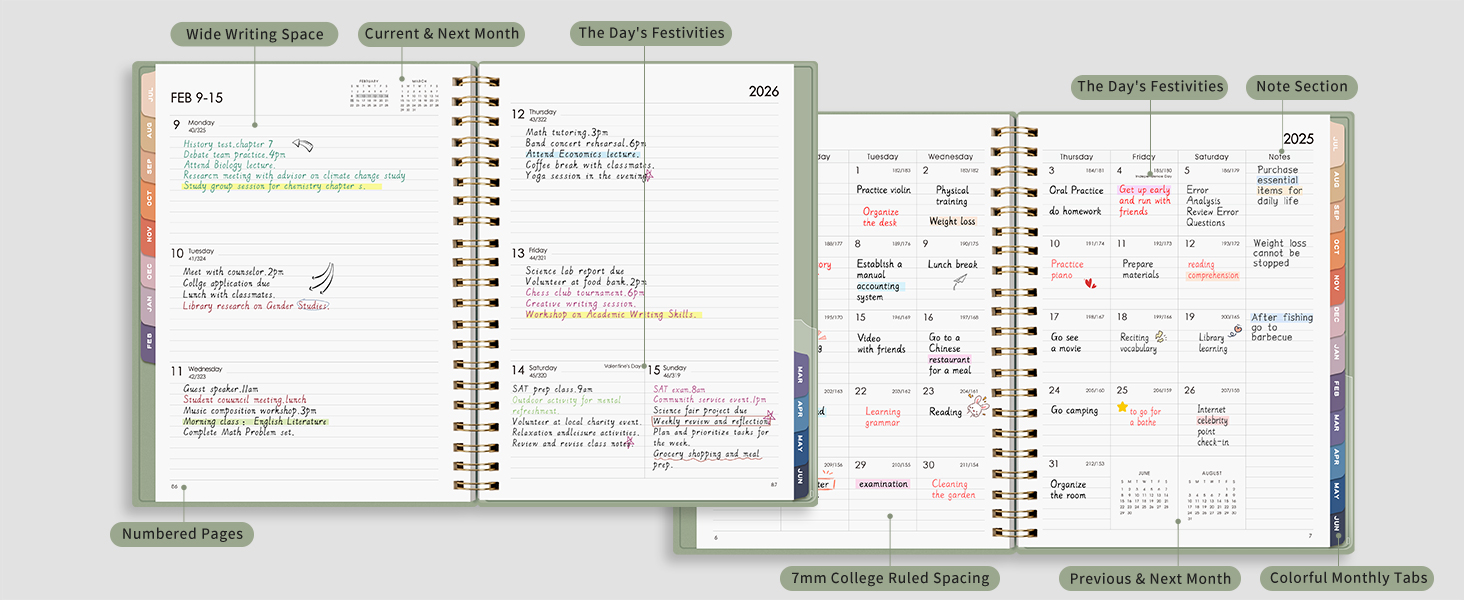 Wide Writing Space
Current & Next Month
The Day's Festivities
FEB 9-15
FEBRUARY
MARCH
9 Monday
40/325
History test.chapter 7
Debate team practice.4pm
Attend Biology lecture.
Research meeting with advisor on climate change study
Study group session for chemistry chapter s.
10 Tuesday
41/324
Meet with counselor.2pm
Collge application due
Lunch with classmates.
Library research on Gender Studies.
11 Wednesday
42/323
Guest speaker.11am
Student couuncil meeting.lunch
Music composition workshop.3pm
Morning class : English Literature
Complete Math Problem set.
86
JUL
AUG
SEP
OCT
NOV
DEC
JAN
FEB
2026
12 Thursday
43/322
Math tutoring.3pm
Band concert rehearsal.6pm
Attend Economics lecture.
Coffee break with classmates.
Yoga session in the evening
13 Friday
44/321
Science lab report due
Volunteer at food bank.2pm
Chess club tournament.6pm
Creative writing session.
Workshop on Academic Writing Skills.
14 Saturday
45/320
Valentine's Day
SAT prep class.9am
Outdoor activity for mental
refreshment.
Volunteer at local charity event.
Relaxation andleisure activities.
Review and revise class notes
15 Sunday
46/319
SAT exam.8am
Communith service event.1pm
Science fair project due
Weekly review and reflection
Plan and prioritize tasks for
the week.
Grocery shopping and meal
prep.
87
MAR
APR
MAY
JUN
Numbered Pages
The Day's Festivities
Note Section
2025
day
Tuesday
Wednesday
Thursday
Friday
Saturday
Notes
1 182/183
Practice violin
Organize
the desk
2 183/182
Physical
training
Weight loss
3 184/181
Oral Practice
do homework
4 185/180
Independence Day
Get up early
and run with
friends
5 186/179
Error
Analysis
Review Error
Questions
Purchase
essential
items for
daily life
188/177
ory
8 189/176
Establish a
manual
accounting
system
9 190/175
Lunch break
10 191/174
Practice
piano
11 192/173
Prepare
materials
12 193/172
reading
comprehension
Weight loss
cannot be
stopped
15 196/169
Video
with friends
16 197/168
Go to a
Chinese
restaurant
for a meal
17 198/167
Go see
a movie
18 199/166
Reciting
vocabulary
19 200/165
Library
learning
After fishing
go to
barbecue
202/163
22 203/162
Learning
grammar
23 204/161
Reading
24 205/160
Go camping
25 206/159
to go for
a bathe
26 207/158
Internet
celebrity
point
check-in
209/156
29 210/155
examination
30 211/154
Cleaning
the garden
31 212/153
Organize
the room
JUNE
AUGUST
6
7
JUL
AUG
SEP
OCT
NOV
DEC
JAN
FEB
MAR
APR
MAY
JUN
7mm College Ruled Spacing
Previous & Next Month
Colorful Monthly Tabs